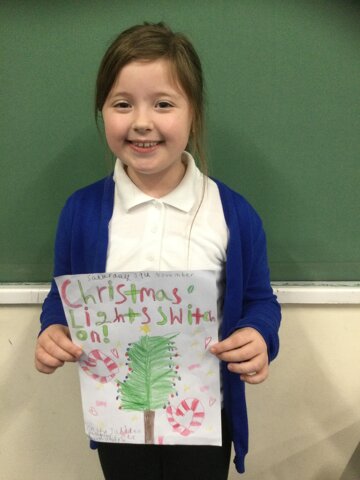 Saturday 19th November
Christmas
Lights switch
on!